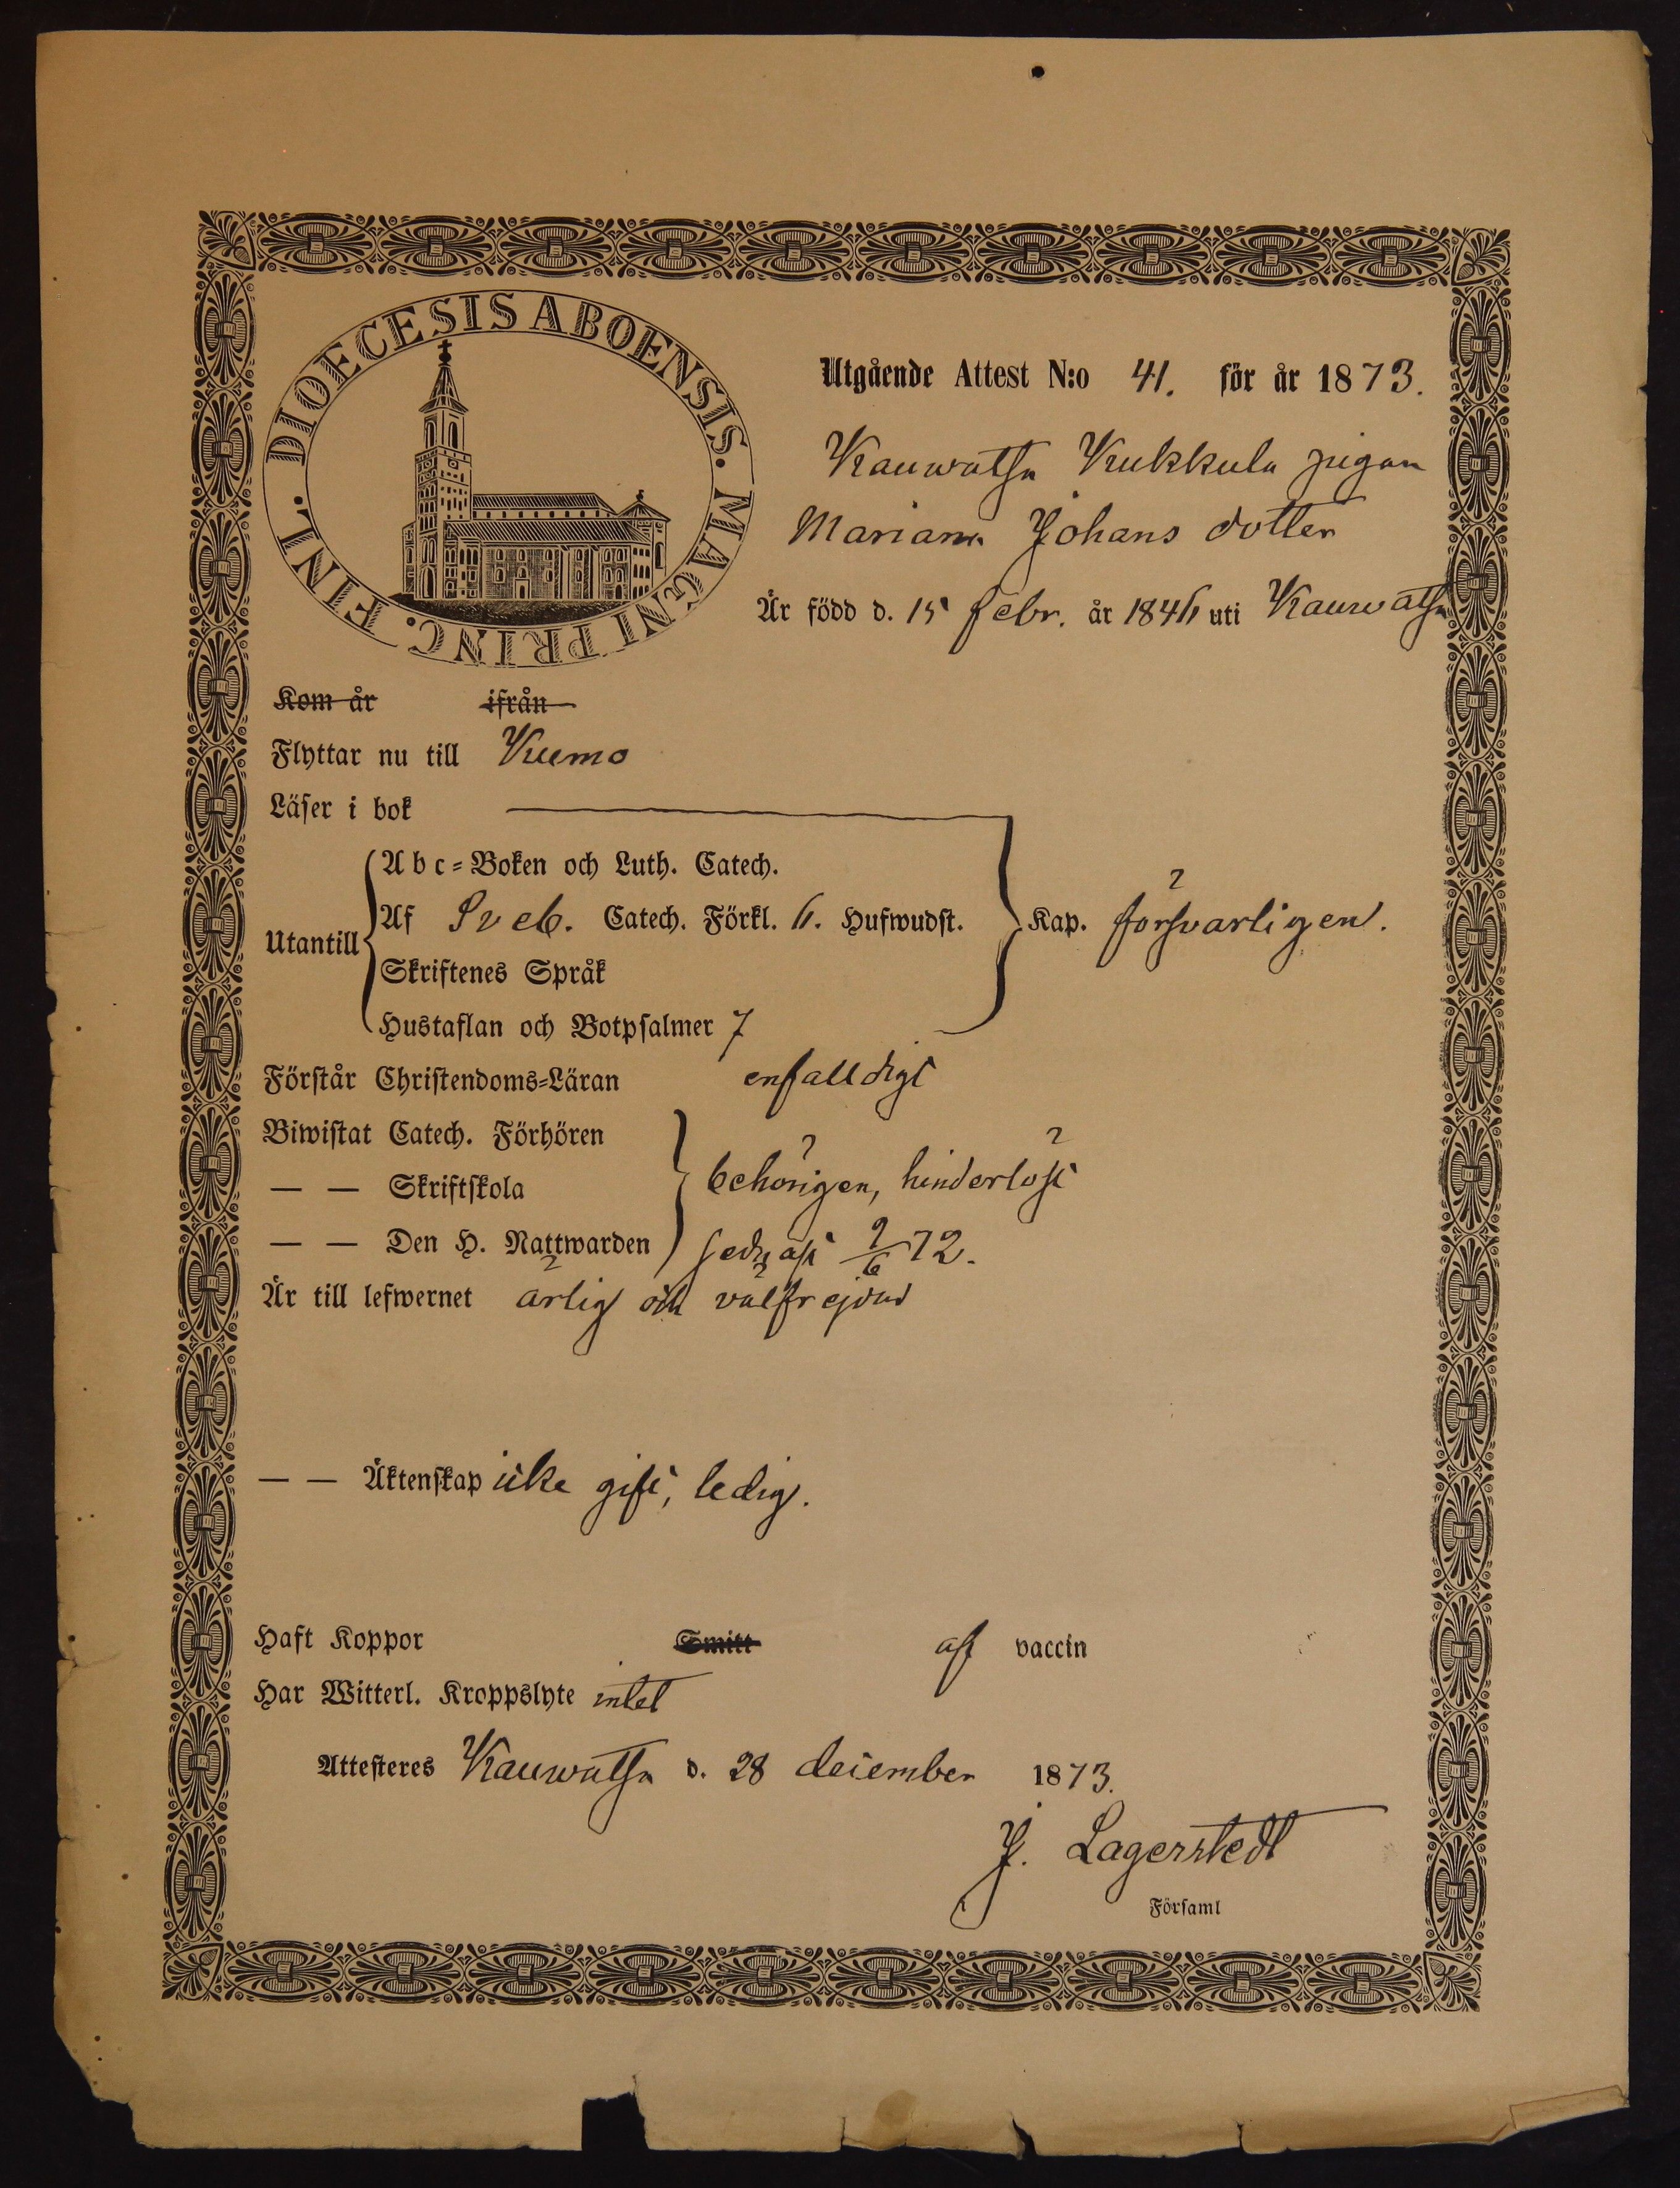 DIOECESIS ABOENSIS. MAGNI PRINC. FINL.
Utgående Attest N:o 41. för år 1873.
Kauwatsa Kukkula pigan
Mariana Johans dotter
Är född d. 15 febr. år 1846 uti Kauwatsa
Kom år ifrån
Flyttar nu till Kumo
Läser i bok
Abc-Boken och Luth. Catech.
Utantill Af Sveb. Catech. Förkl. 6. Hufwudst. Kap. försvarligen.
Skriftenes Språk
Hustaflan och Botpsalmer 7
Förstår Christendoms-Läran enfalldigt
Biwistat Catech. Förhören
— — Skriftskola behörigen, hinderlöst
— — Den H. Nattwarden sedn. 9/6 72.
Är till lefwernet ärlig och välfrejdad
— — Äktenskap icke gift, ledig.
Haft Koppor Smitt af vaccin
Har Witterl. Kroppslyte intet
Attesteres Kauwatsa d. 28 december 1873.
J. Lagerstedt
Församl